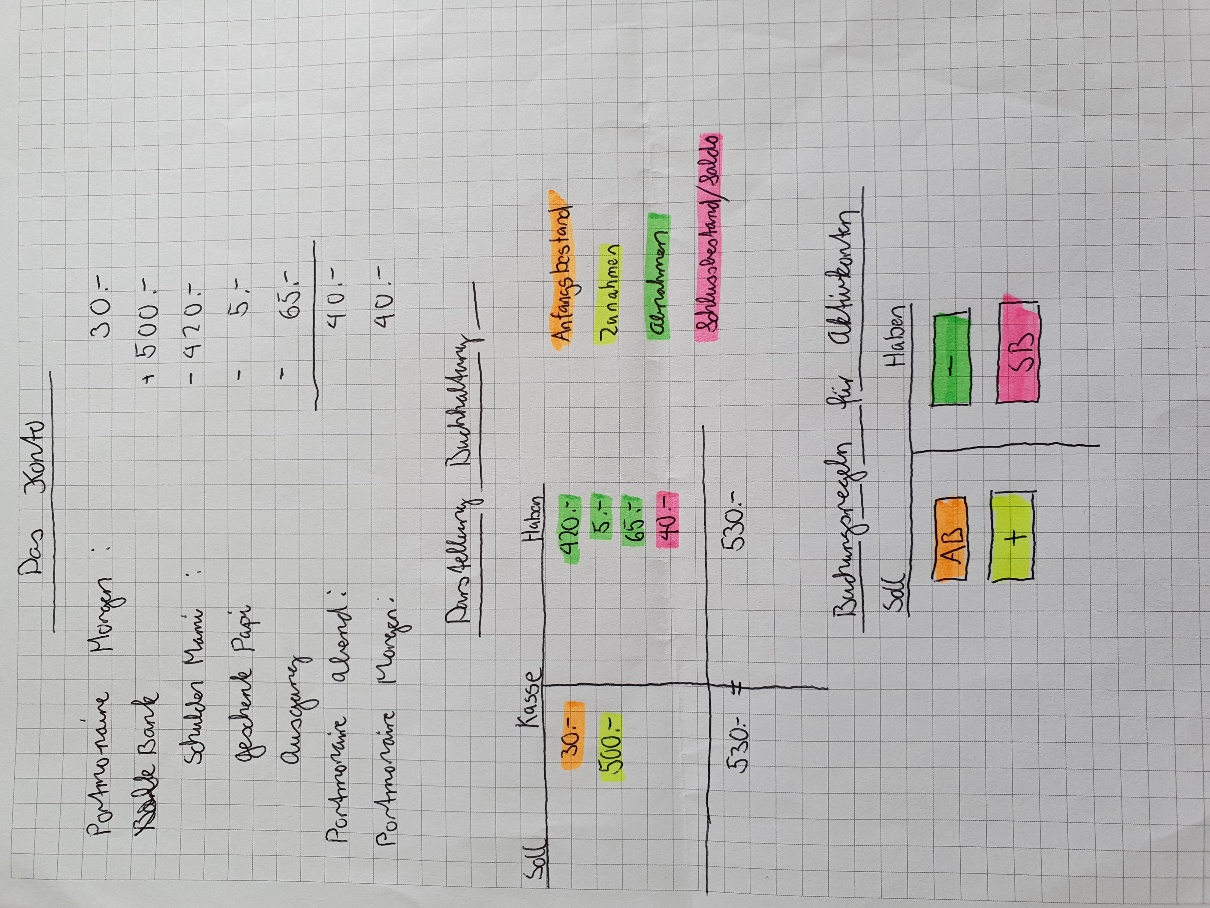 Das Konto
Portmonaire Morgen : 30.-
Bank + 500.-
Schulden Mami : - 420.-
geschenk Papi - 5.-
Ausgang - 65.-
Portmonaire abend : 40.-
Portmonaire Morgen: 40.-
Darstellung Buchhaltung
Soll Kasse Haben
30.- 420.- Anfangsbestand
500.- 5.- Zunahmen
65.- abnahmen
40.- Schlussbestand/Saldo
530.- = 530.-
Buchungsregeln für Aktivkonten
Soll Haben
AB -
+ SB